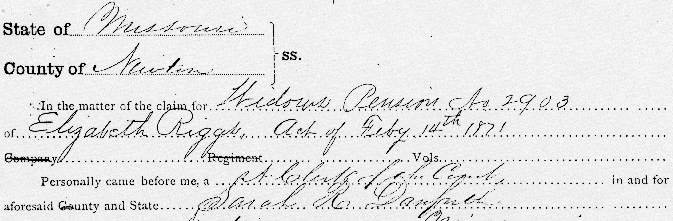 State of Missouri
County of Newton
ss.
In the matter of the claim for Widows Pension No 2903
of Elizabeth Riggs, Act of Feby 14th 1871
Company Regiment Vols.
Personally came before me, a of the Court, in and for
aforesaid County and State Sarah